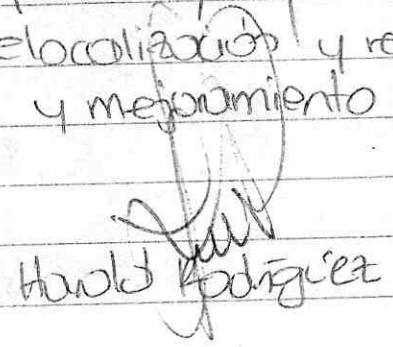 elocalización y re
y mejoramiento
Harold Rodríguez